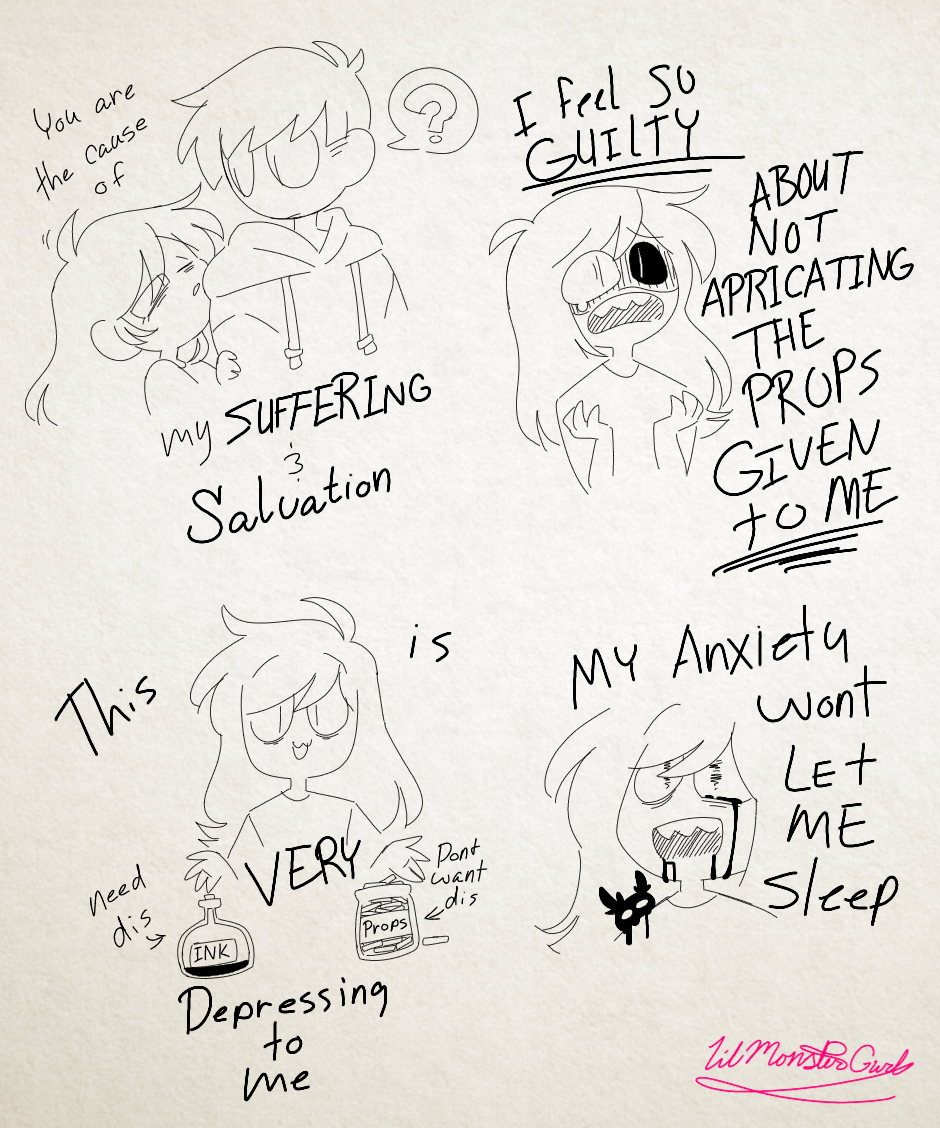 You are
the cause
of
?
my SUFFERING
&
Salvation
I feel SO
GUILTY
ABOUT
NOT
APRICATING
THE
PROPS
GIVEN
to ME
This is
VERY
need
dis
INK
Dont
want
dis
Props
Depressing
to
me
MY Anxiety
wont
LET
ME
Sleep
LilMonsterGurl